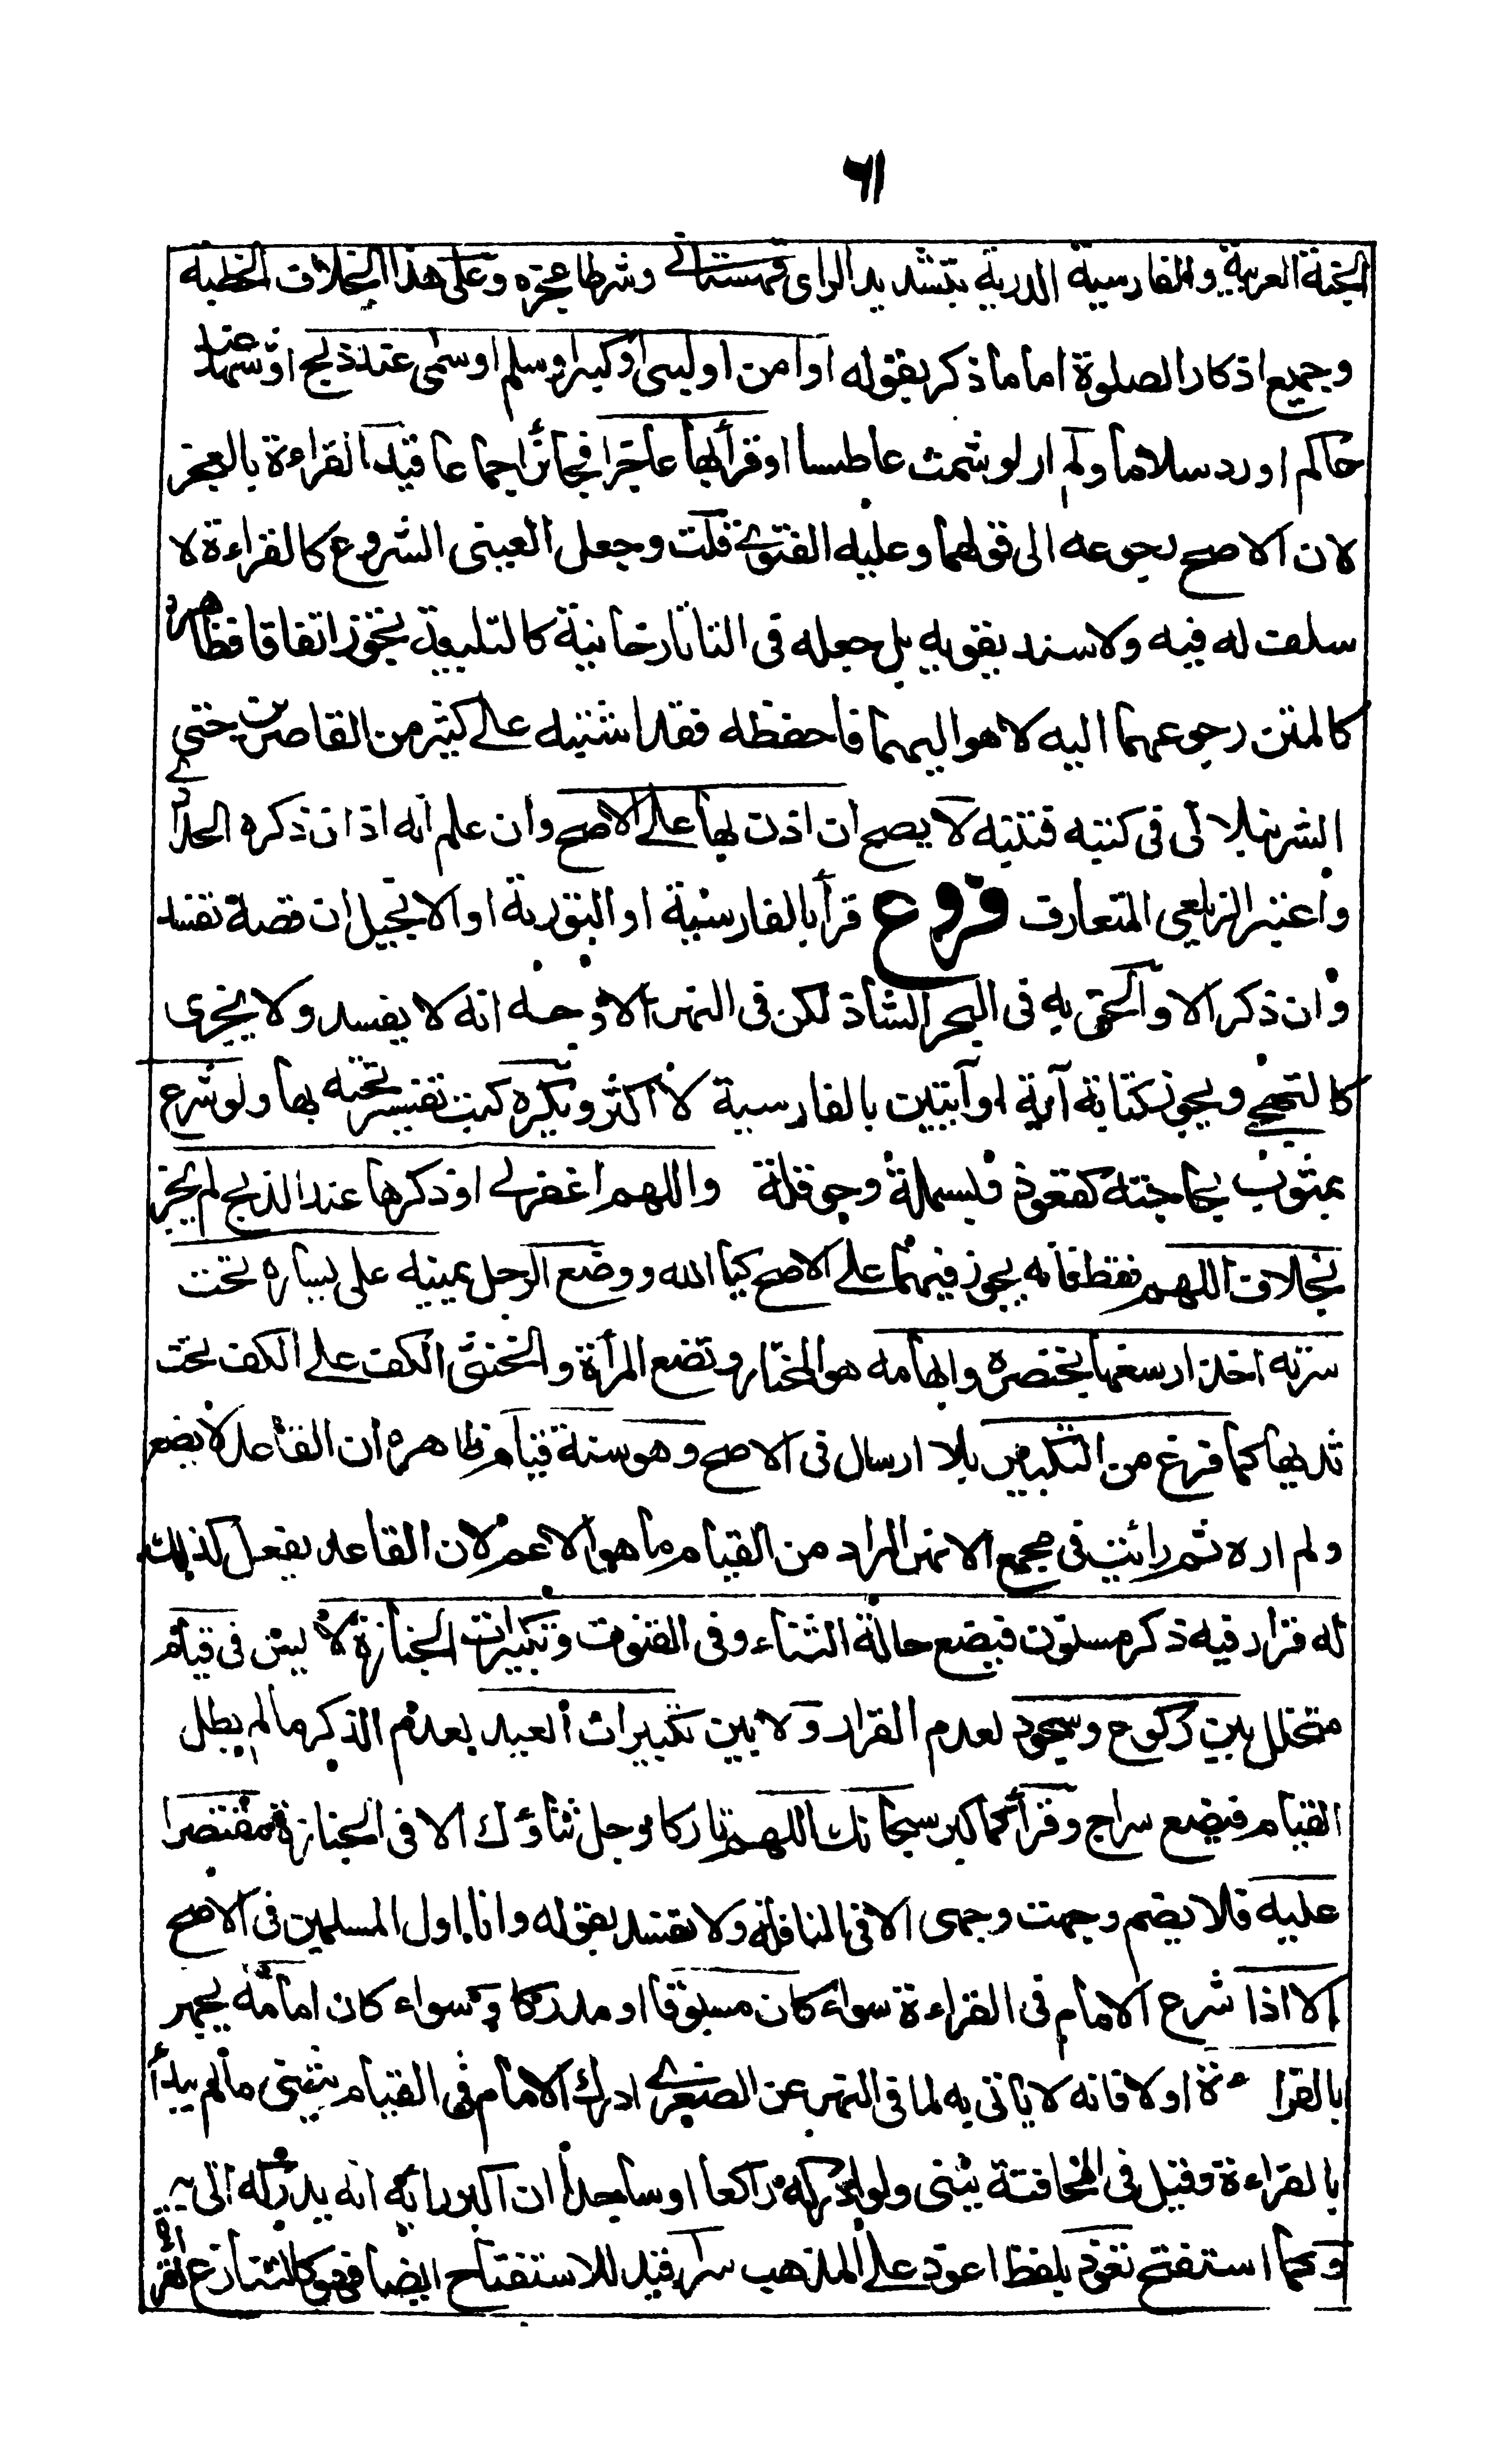 ٦١
الجنة العربية والفارسية الدرية بتشديد الراى قهستانى وشرطا عجزه وعلى هذا الخلاف الخطبة
وجميع اذكار الصلوة اما ما ذكر بقوله او امن او لبى او كبر او سلم او سمى عند ذبح او شهد عند
حاكم او رد سلاما ولم ار لو شمت عاطسا او قرأ بها عاجزا فجائز اجماعا قيد القراءة بالعجز
لان الاصح رجوعه الى قولهما وعليه الفتوى قلت وجعل العينى الشروع كالقراءة لا
سلف له فيه ولا سند يقويه بل جعله فى التاتارخانية كالتلبية يجوز اتفاقا فظاهره
كالمتن رجوعهما اليه لا هو اليهما فاحفظه فقد اشتبه على كثير من القاصرين حتى
الشرنبلالى فى كتبه فتنبه لا يصح ان اذن بها على الاصح وان علم انه اذان ذكره الحدادى
واعتبر الزيلعى المتعارف فروع قرأ بالفارسية او التورية او الانجيل ان قصة تفسد
وان ذكرا لا والحق به فى البحر الشاذ لكن فى النهر الاوجه انه لا يفسد ولا يجزى
كالتهجى ويجوز كتابة آية او آيتين بالفارسية لا اكثر ويكره كتب تفسيره تحته بها ولو شرع
بمشوب بحاجته كتعوذ وبسملة وحوقلة واللهم اغفر لى او ذكرها عند الذبح لم يجز
بخلاف اللهم فقط فانه يجوز فيهما على الاصح كيا الله ووضع الرجل يمينه على يساره تحت
سرته اخذا رسغها بخنصره وابهامه هو المختار وتضع المرأة والخنثى الكف على الكف تحت
ثديها كما فرغ من التكبير بلا ارسال فى الاصح وهو سنة قيام ظاهره ان القاعد لا يضع
ولم اره ثم رائت فى مجمع الانهر المراد من القيام ما هو الاعم لان القاعد يفعل كذلك
له قرار فيه ذكر مسنون فيضع حالة الثناء وفى القنوت وتكبيرات الجنازة لا يسن فى قيام
متخلل بين ركوع وسجود لعدم القرار ولا بين تكبيرات العيد لعدم الذكر ما لم يطل
القيام فيضع سراج وقرأ كما كبر سبحانك اللهم تاركا وجل ثناؤك الا فى الجنازة مقتصرا
عليه فلا يضم وجهت وجهى الا فى النافلة ولا تفسد بقوله وانا اول المسلمين فى الاصح
الا اذا شرع الامام فى القراءة سواء كان مسبوقا او مدركا وسواء كان امامه يجهر
بالقراءة او لا فانه لا ياتى به لما فى النهر عن الصغرى ادرك الامام فى القيام يثنى ما لم يبدأ
بالقراءة وقيل فى المخافتة يثنى ولو ادركه راكعا او ساجدا ان اكبر رائه انه يدركه اتى به
وكما استفتح تعوذ بلفظ اعوذ على المذهب سرا قيد للاستفتاح ايضا فهو كالتنازع